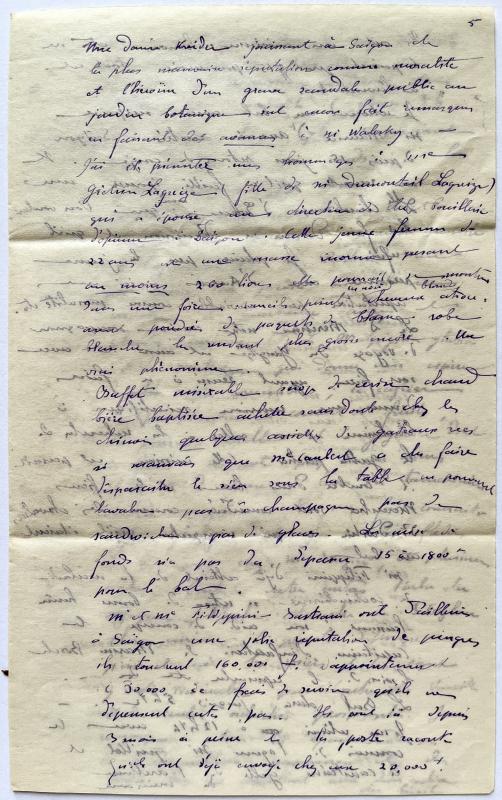 5
Une dame Kreider jouissant à Saïgon de
la plus mauvaise réputation comme moralité
et l'héroïne d'un grave scandale public au
jardin botanique s'est encore fait remarquer
en faisant des avances à Mr
J'ai été présenter mes hommages à
fille de Mr Dumonteil Lagrèze)
qui a épousé un directeur de la bouillerie
d'opium à Saïgon. Cette jeune femme de
22 ans est une masse énorme pesant
au moins 200 livres. Elle pourrait se montrer
dans une foire
avec poudre de paquets blancs robe
blanche la rendant plus grosse encore. Un
vrai phénomène.
Buffet misérable sirop de cerise chaud
bière baptisée achetée sans doute chez les
chinois quelques assiettes de gateaux secs
si mauvais que Mr a du faire
disparaitre le sien sous la table ne pouvant
l'avaler pas de champagne pas de
sandwichs pas de glaces. Les
fonds n'a pas du dépasser 15 à 1800
pour le bal.
M et Me Filippini ont d'ailleurs
à Saïgon une jolie réputation de pingres
ils touchent 160.000 f. appointements
et 30.000 de frais de service qu'ils ne
dépensent certes pas. Ils sont là depuis
3 mois à peine et la poste raconte
qu'ils ont déjà envoyé chez eux 20.000 f.